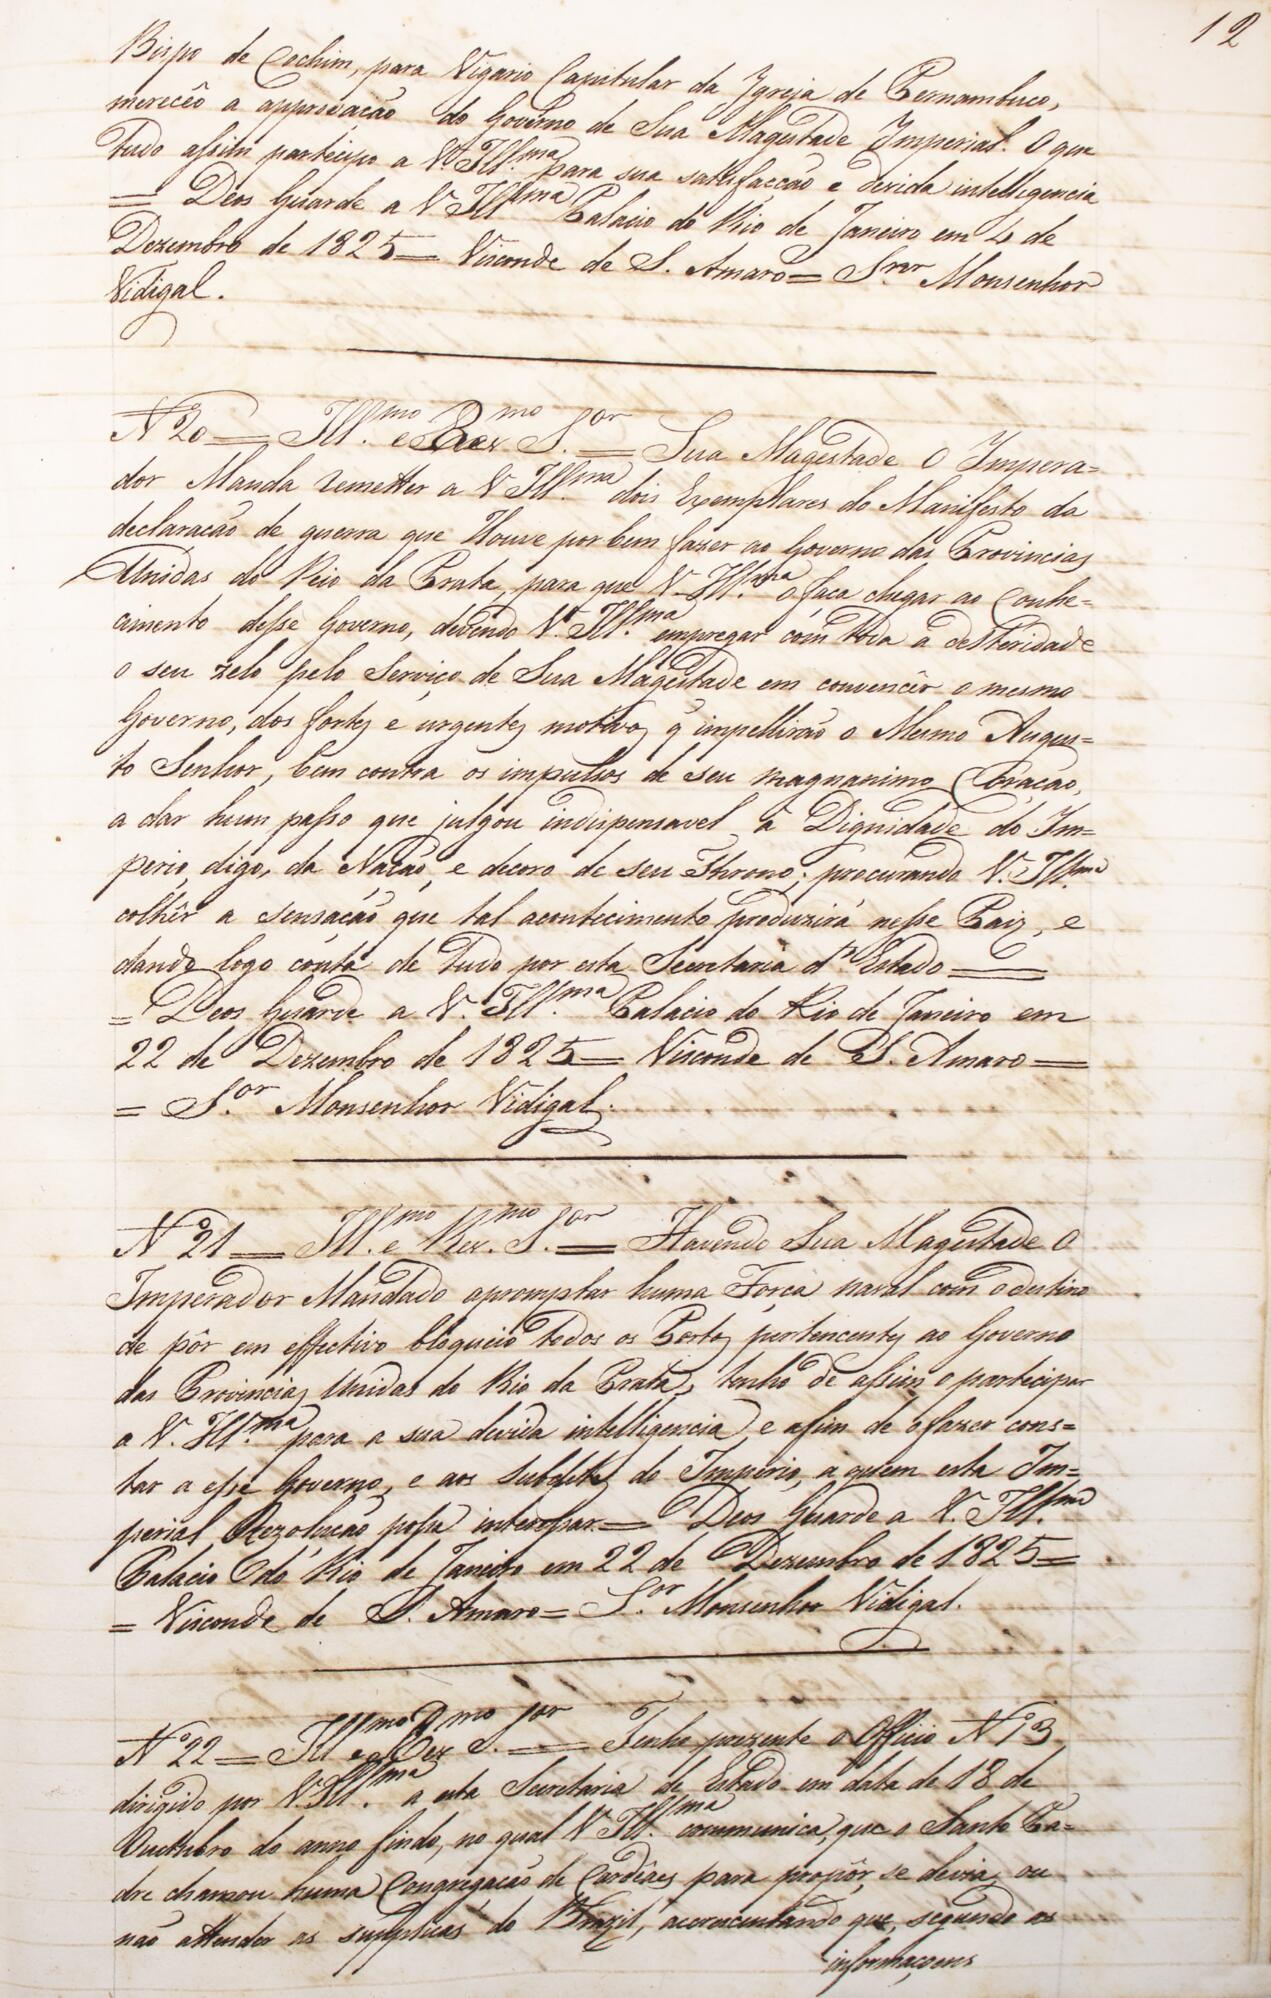 12
Bispo de Cochim, para Vigario Capitular da Igreja de Pernambuco,
merecêo a approvação do Governo de Sua Magestade Imperial. O que
tudo assim participo a V. Ill.ma para sua satisfacção e devida intelligencia
= Deos Guarde a V. Ill.ma Palacio do Rio de Janeiro em 4 de
Dezembro de 1825 = Visconde de S. Amaro = Snr. Monsenhor
Vidigal.
Nº 20 = Ill.mo e Rev.mo S.or = Sua Magestade O Impera=
dor Manda remetter a V. Ill.ma dois Exemplares do Manifesto da
declaração de guerra que Houve por bem fazer ao Governo das Provincias
Unidas do Rio da Prata, para que V. Ill.ma o faça chegar ao Conhe=
cimento desse Governo, devendo V. Ill.ma empregar com toda a desteridade
o seu zelo pelo Serviço de Sua Magestade em convencêr o mesmo
Governo, dos fortes e urgentes motivos q' impellirão o Mesmo Augus=
to Senhor, bem contra os impulsos de seu magnanimo Coração,
a dar hum passo que julgou indispensavel à Dignidade do Im=
perio, digo, da Nação, e decoro de seu Throno; procurando V. Ill.ma
colhêr a sensação que tal acontecimento produzirá nesse Paiz, e
dando logo conta de tudo por esta Secretaria d'Estado =
= Deos Guarde a V. Ill.ma Palacio do Rio de Janeiro em
22 de Dezembro de 1825 = Visconde de S. Amaro =
= S.or Monsenhor Vidigal.
Nº 21 = Ill.mo e Rev.mo S.or = Havendo Sua Magestade O
Imperador Mandado apromptar huma Força naval com o destino
de pôr em effectivo bloqueio todos os Portos pertencentes ao Governo
das Provincias Unidas do Rio da Prata, tenho de assim o participar
a V. Ill.ma para a sua devida intelligencia, e afim de o fazer cons=
tar a esse Governo, e aos Subditos do Imperio, a quem esta Im=
perial Rezolução possa interessar = Deos Guarde a V. Ill.ma
Palacio do Rio de Janeiro em 22 de Dezembro de 1825 =
= Visconde de S. Amaro = S.or Monsenhor Vidigal.
Nº 22 = Ill.mo e Rev.mo S.or = Tenho prezente o Officio Nº 13
dirigido por V. Ill.ma a esta Secretaria de Estado em data de 18 de
Outubro do anno findo, no qual V. Ill.ma communica, que o Santo Pa=
dre chamou huma Congregação de Cardêaes para propôr, se devia, ou
não attender as supplicas do Brazil, acrescentando que, segundo as
informaçoens